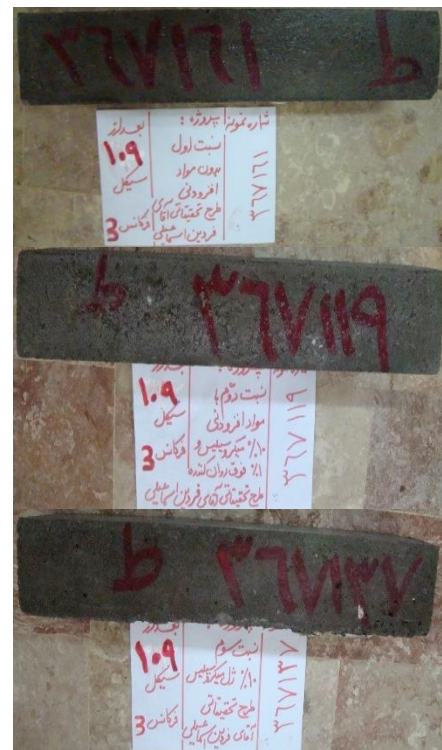 ۳۶۷۱۶۱ ط
شماره نمونه
۳۶۷۱۶۱
پروژه :
نسبت اول
بدون مواد
افزودنی
طرح تحقیقاتی آقای
فردین اسماعیلی
بعد از
۱۰۹
سیکل
فرکانس 3
ط ۳۶۷۱۱۹
۳۶۷۱۱۹
نسبت دوم با
مواد افزودنی
۱۰٪ میکروسیلیس و
۱٪ فوق روان کننده
طرح تحقیقاتی آقای فردین اسماعیلی
بعد از
۱۰۹
سیکل
فرکانس 3
ط ۳۶۷۱۳۷
۳۶۷۱۳۷
نسبت سوم
۱۰٪ ژل میکروسیلیس
طرح تحقیقاتی
آقای فردین اسماعیلی
بعد از
۱۰۹
سیکل
فرکانس 3